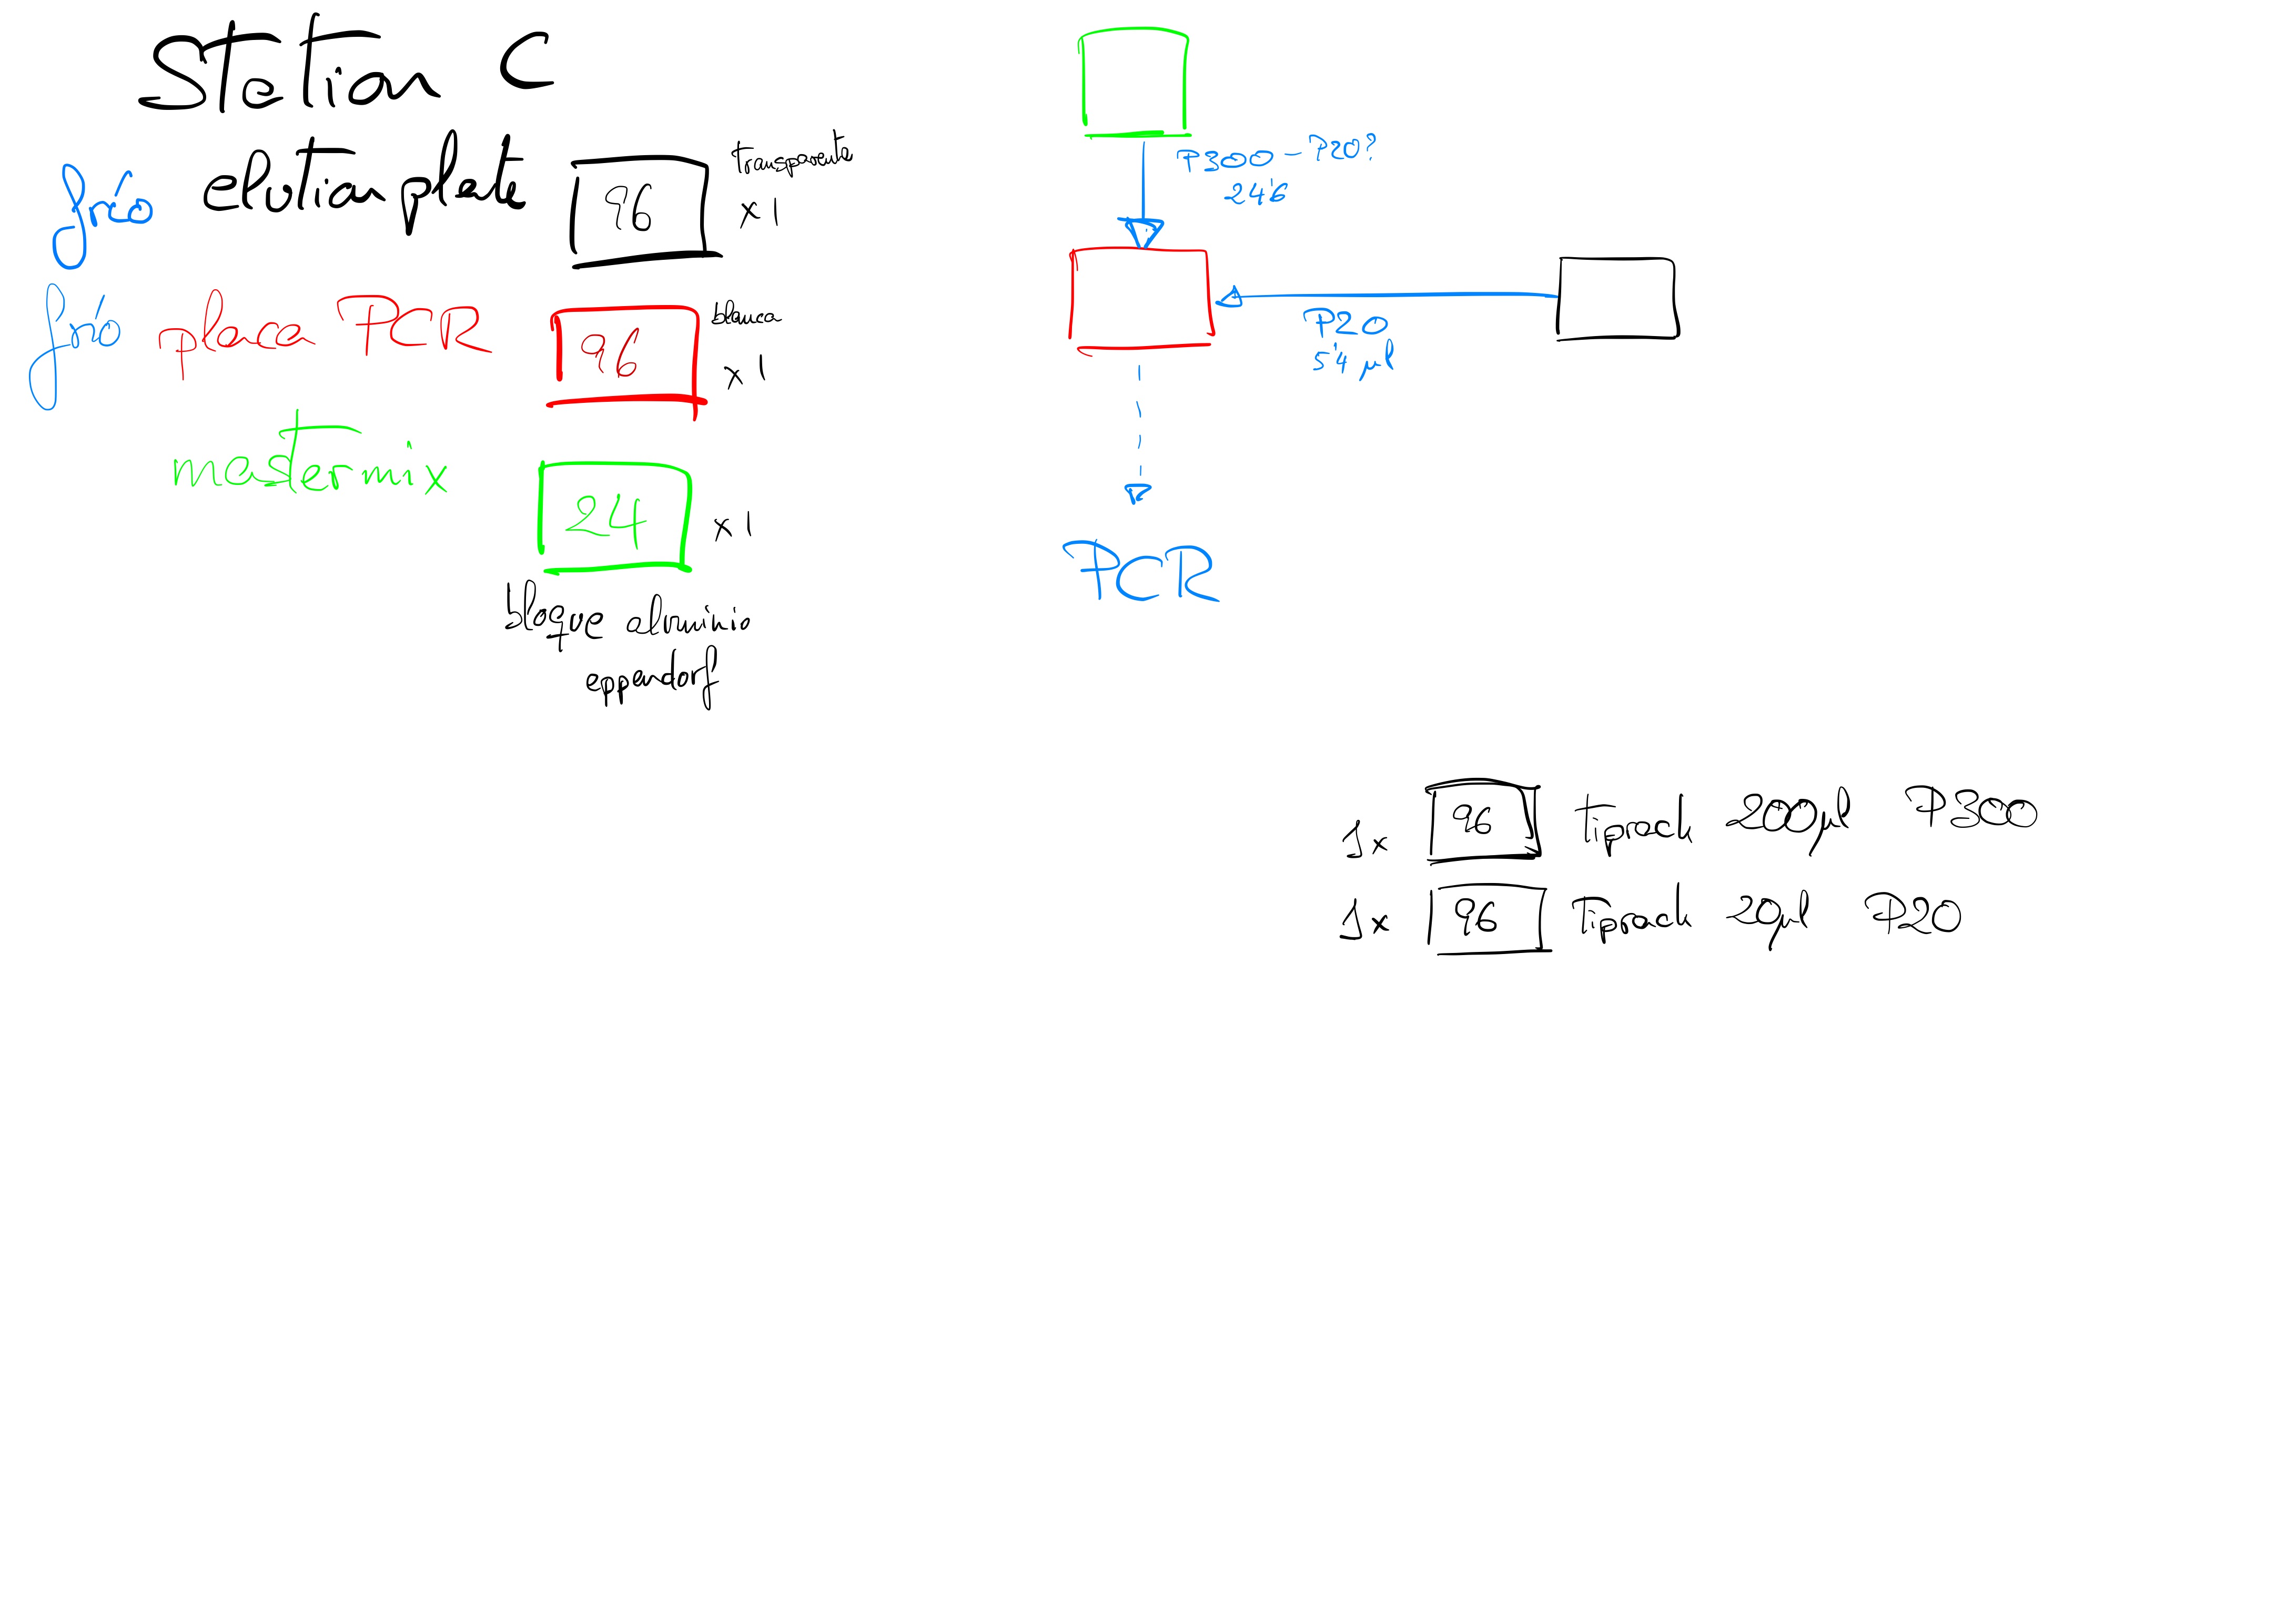 Station C
frío elution plate 96 transparente x1
frío placa PCR 96 blanca x1
mastermix 24 x1
bloque aluminio
eppendorf
P300 - P20?
24'6
P20
5'4 µl
PCR
1x 96 tiprack 200µl P300
1x 96 tiprack 20µl P20